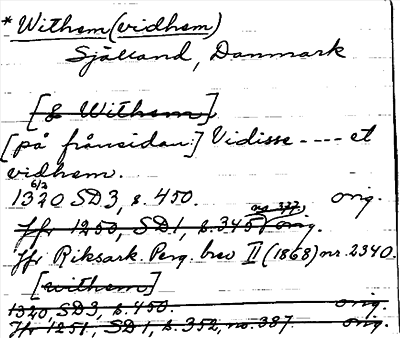 * Withem (vidhem)
Själland, Danmark
[& Withem]
[på frånsidan:] Vidisse ---- et
vidhem.
1320 6/2 SD3, s. 450. orig.
Jfr 1250, SD1, s. 345 no 377, orig.
Jfr Riksark. Perg. brev II (1868) nr. 2340.
[withem]
1320, SD3, s. 450. orig.
Jfr 1251, SD1, s. 352, no. 387. orig.